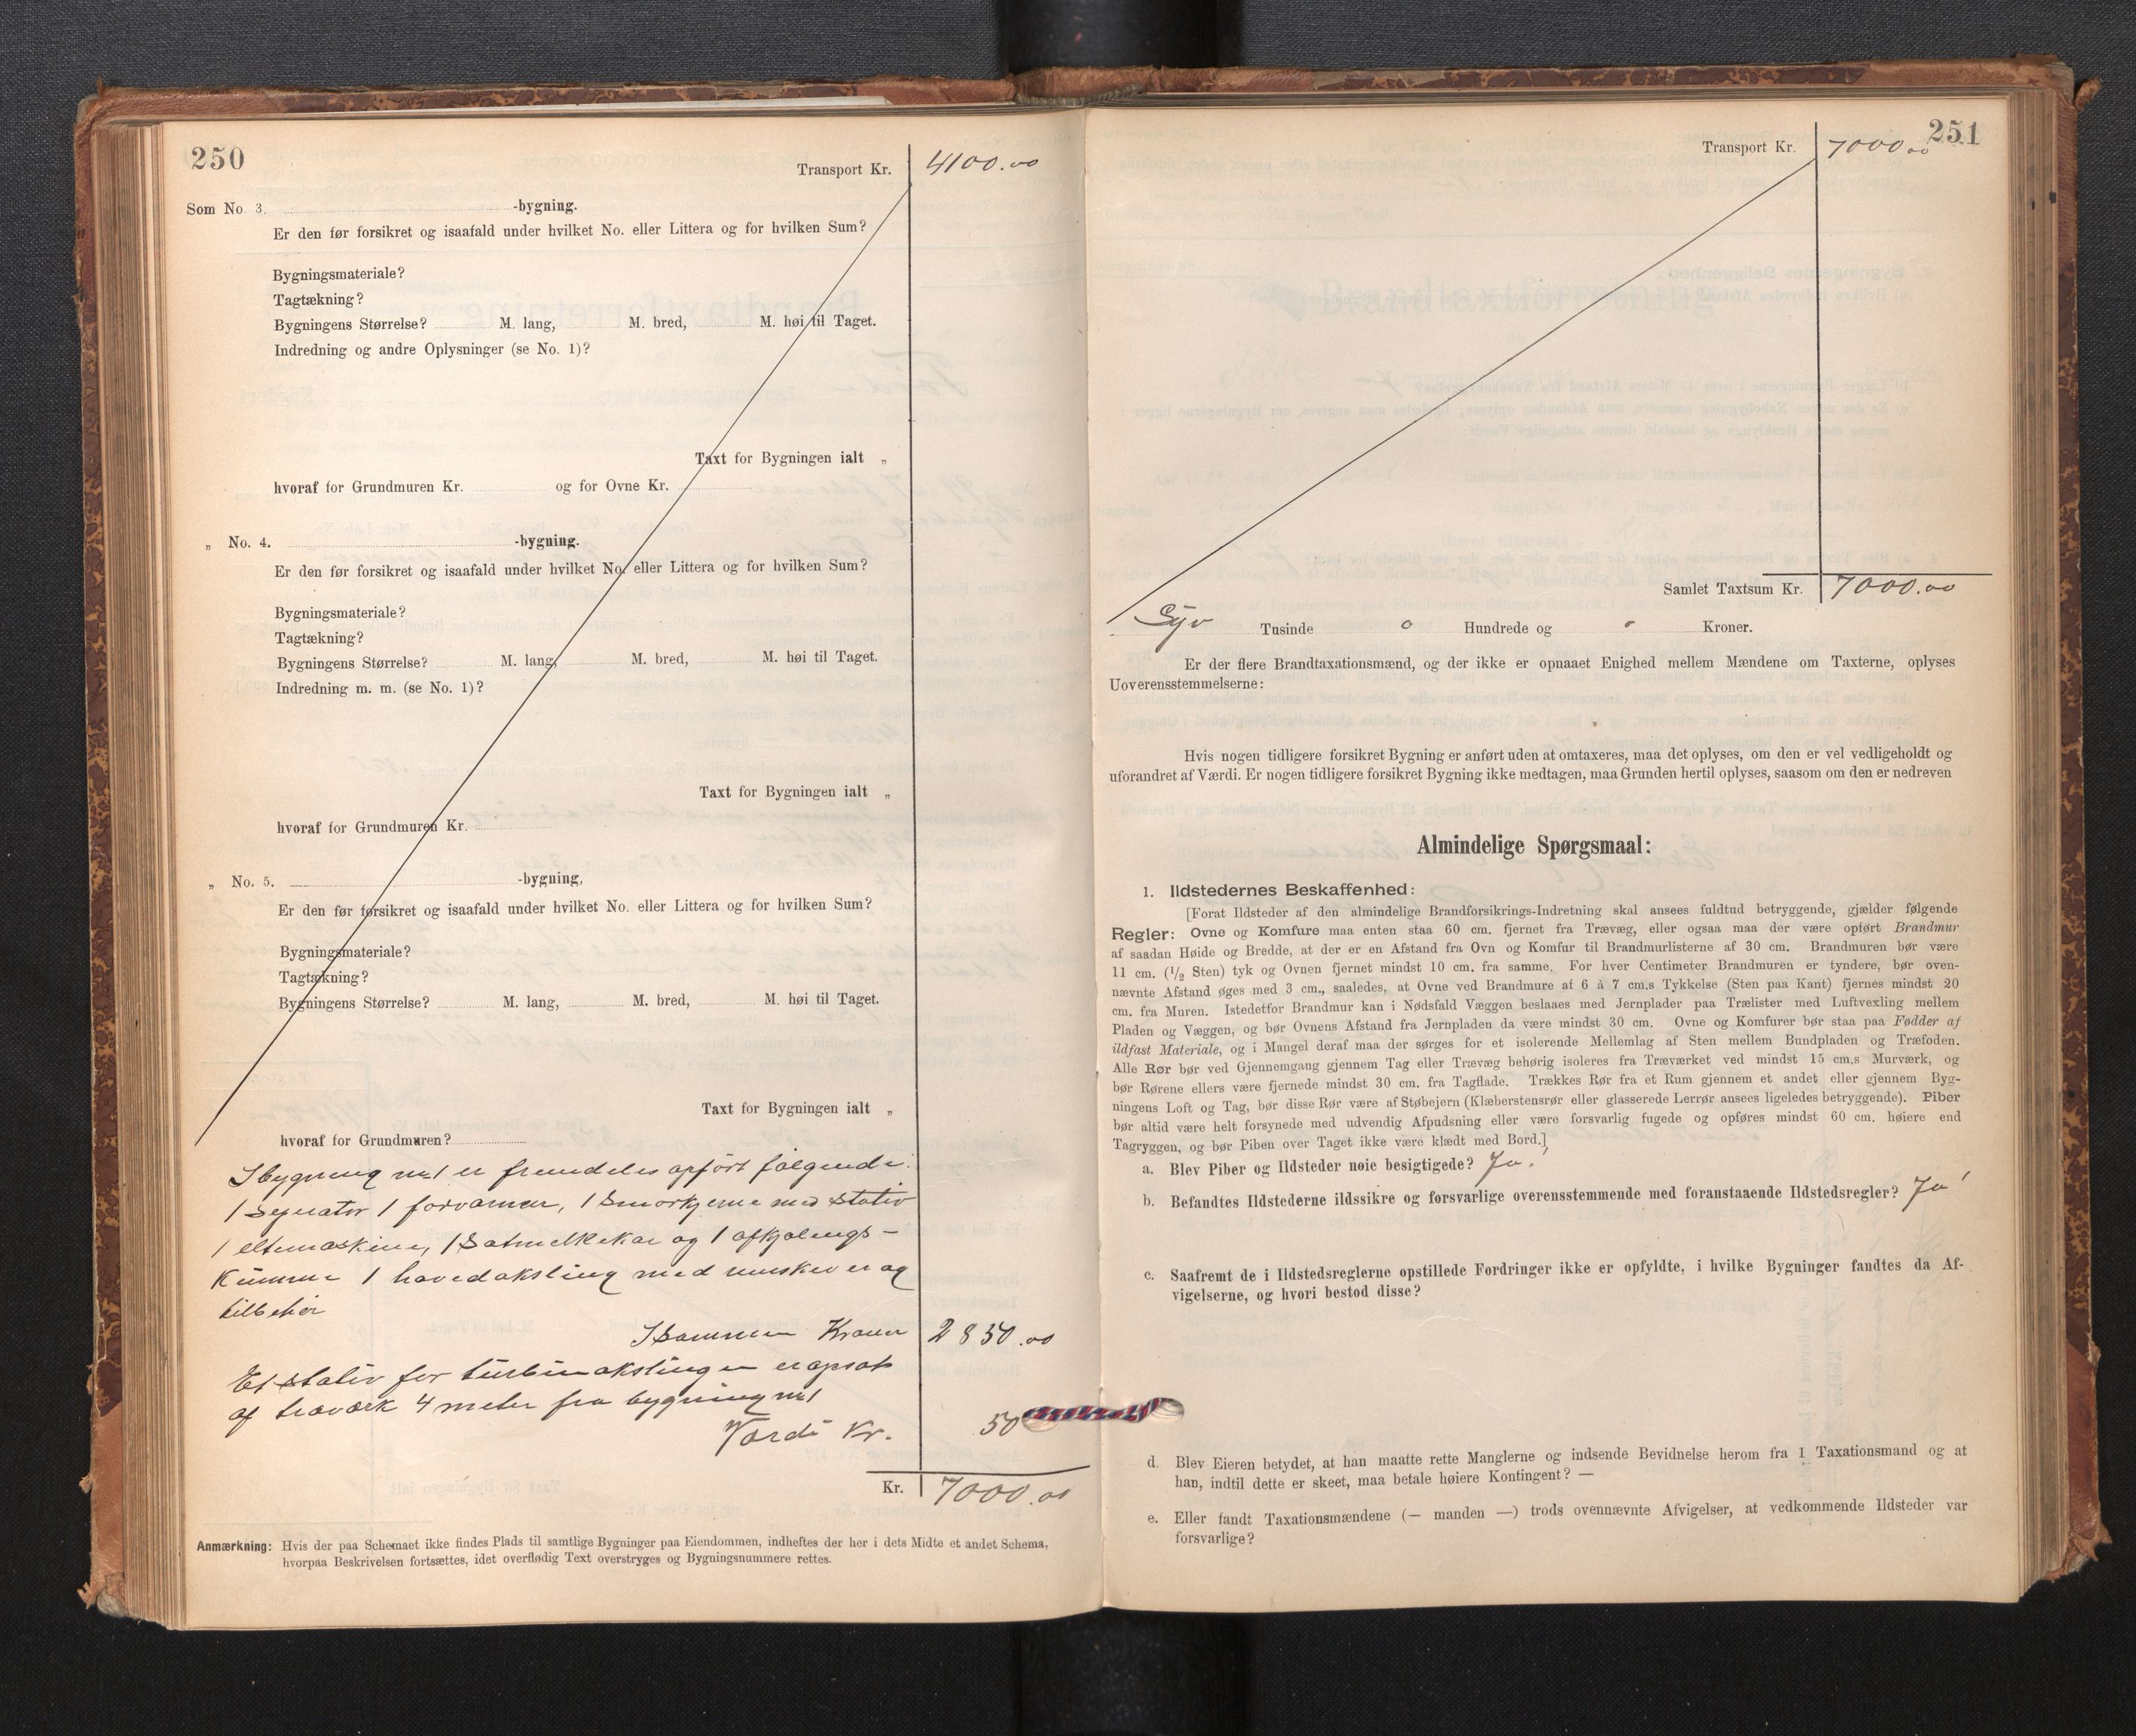 250
Transport Kr. 4100.00
Som No. 3. -bygning.
Er den før forsikret og isaafald under hvilket No. eller Littera og for hvilken Sum?
Bygningsmateriale?
Tagtækning?
Bygningens Størrelse? M. lang, M. bred, M. høi til Taget.
Indredning og andre Oplysninger (se No. 1)?
Taxt for Bygningen ialt „
hvoraf for Grundmuren Kr. og for Ovne Kr.
„ No. 4. -bygning.
Er den før forsikret og isaafald under hvilket No. eller Littera og for hvilken Sum?
Bygningsmateriale?
Tagtækning?
Bygningens Størrelse? M. lang, M. bred, M. høi til Taget.
Indredning m. m. (se No. 1)?
Taxt for Bygningen ialt „
hvoraf for Grundmuren Kr.
„ No. 5. -bygning,
Er den før forsikret og isaafald under hvilket No. eller Littera og for hvilken Sum?
Bygningsmateriale?
Tagtækning?
Bygningens Størrelse? M. lang, M. bred, M. høi til Taget.
Taxt for Bygningen ialt „
hvoraf for Grundmuren?
I bygning no 1 er fremdeles opført følgende:
1 Seperator 1 forvarmer, 1 Smørkjerne med Stativ
1 eltemaskine, 1 Satmelkekar og 1 afkjølings-
Kumme 1 hovedaksling med remskiver og
tilbehør
Isammen Kroner 2850.00
Et stativ for turbinakslingen er opsat
af træværk 4 meter fra bygning no 1
Værdi Kr. 50
Kr. 7000.00
Anmærkning: Hvis der paa Schemaet ikke findes Plads til samtlige Bygninger paa Eiendommen, indheftes der her i dets Midte et andet Schema,
hvorpaa Beskrivelsen fortsættes, idet overflødig Text overstryges og Bygningsnummere rettes.
251
Transport Kr. 7000.00
Samlet Taxtsum Kr. 7000.00
Syv Tusinde 0 Hundrede og Kroner.
Er der flere Brandtaxationsmænd, og der ikke er opnaaet Enighed mellem Mændene om Taxterne, oplyses
Uoverensstemmelserne:
Hvis nogen tidligere forsikret Bygning er anført uden at omtaxeres, maa det oplyses, om den er vel vedligeholdt og
uforandret af Værdi. Er nogen tidligere forsikret Bygning ikke medtagen, maa Grunden hertil oplyses, saasom om den er nedreven
Almindelige Spørgsmaal:
1. Ildstedernes Beskaffenhed:
[Forat Ildsteder af den almindelige Brandforsikrings-Indretning skal ansees fuldtud betryggende, gjælder følgende
Regler: Ovne og Komfure maa enten staa 60 cm. fjernet fra Trævæg, eller ogsaa maa der være opført Brandmur
af saadan Høide og Bredde, at der er en Afstand fra Ovn og Komfur til Brandmurlisterne af 30 cm. Brandmuren bør være
11 cm. (1/2 Sten) tyk og Ovnen fjernet mindst 10 cm. fra samme. For hver Centimeter Brandmuren er tyndere, bør oven-
nævnte Afstand øges med 3 cm., saaledes, at Ovne ved Brandmure af 6 à 7 cm.s Tykkelse (Sten paa Kant) fjernes mindst 20
cm. fra Muren. Istedetfor Brandmur kan i Nødsfald Væggen beslaaes med Jernplader paa Trælister med Luftvexling mellem
Pladen og Væggen, og bør Ovnens Afstand fra Jernpladen da være mindst 30 cm. Ovne og Komfurer bør staa paa Fødder af
ildfast Materiale, og i Mangel deraf maa der sørges for et isolerende Mellemlag af Sten mellem Bundpladen og Træfoden.
Alle Rør bør ved Gjennemgang gjennem Tag eller Trævæg behørig isoleres fra Træværket ved mindst 15 cm.s Murværk, og
bør Rørene ellers være fjernede mindst 30 cm. fra Tagflade. Trækkes Rør fra et Rum gjennem et andet eller gjennem Byg-
ningens Loft og Tag, bør disse Rør være af Støbejern (Klæberstensrør eller glasserede Lerrør ansees ligeledes betryggende). Piber
bør altid være helt forsynede med udvendig Afpudsning eller være forsvarlig fugede og opføres mindst 60 cm. høiere end
Tagryggen, og bør Piben over Taget ikke være klædt med Bord.]
a. Blev Piber og Ildsteder nøie besigtigede? Ja!
b. Befandtes Ildstederne ildssikre og forsvarlige overensstemmende med foranstaaende Ildstedsregler? Ja!
c. Saafremt de i Ildstedsreglerne opstillede Fordringer ikke er opfyldte, i hvilke Bygninger fandtes da Af-
vigelserne, og hvori bestod disse?
d. Blev Eieren betydet, at han maatte rette Manglerne og indsende Bevidnelse herom fra 1 Taxationsmand og at
han, indtil dette er skeet, maa betale høiere Kontingent? —
e. Eller fandt Taxationsmændene (— manden —) trods ovennævnte Afvigelser, at vedkommende Ildsteder var
forsvarlige?